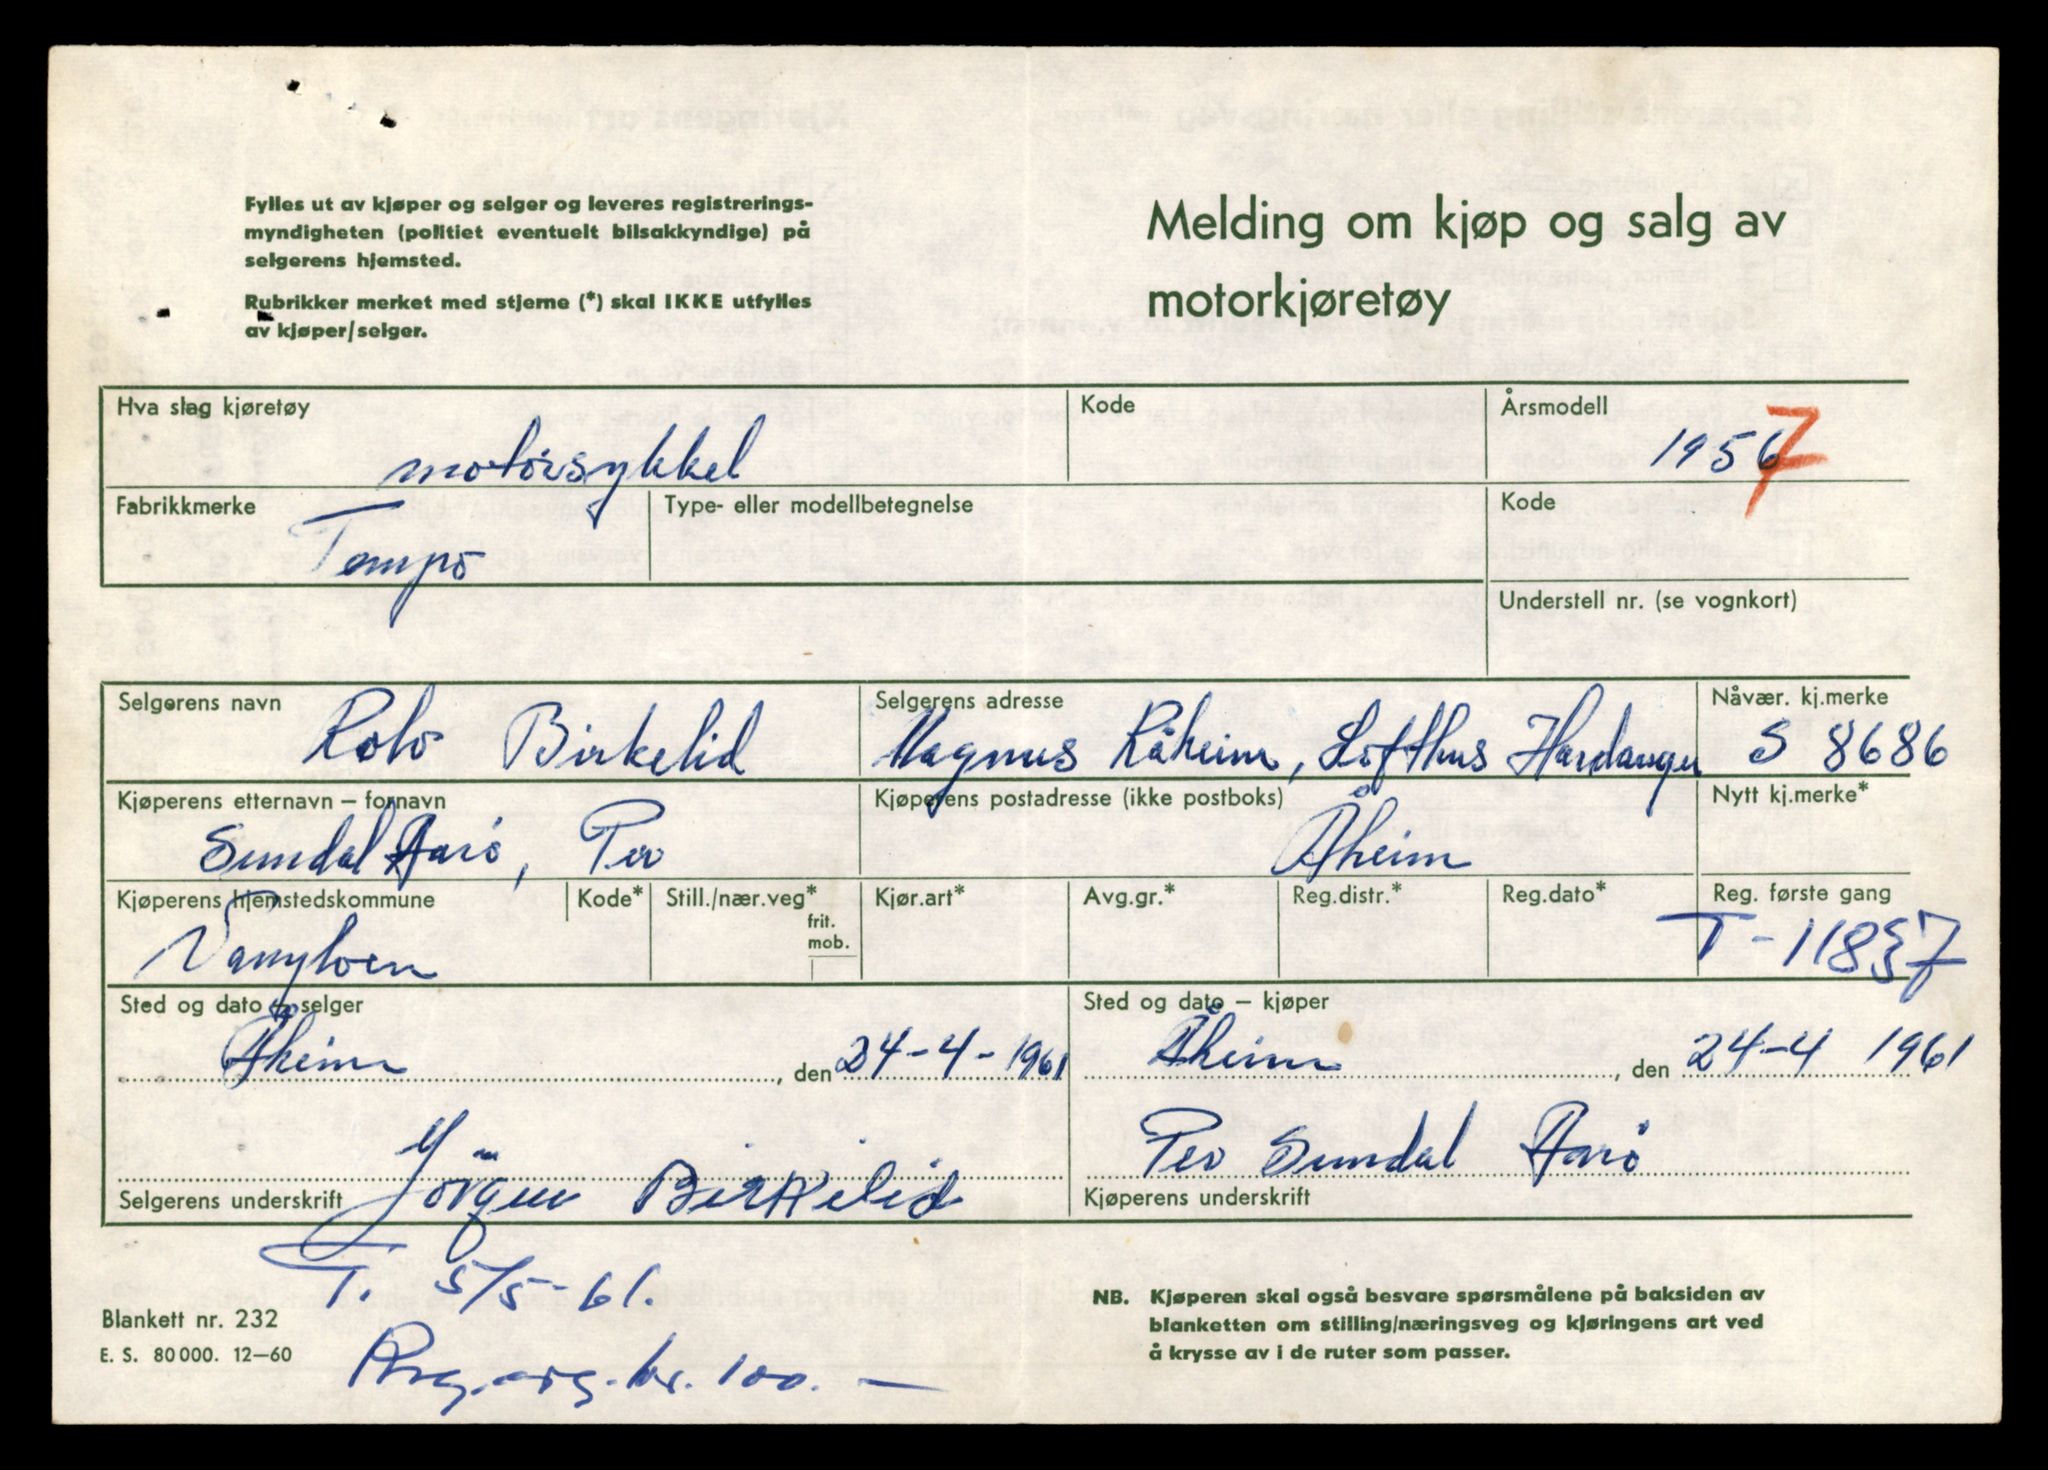 Fylles ut av kjøper og selger og leveres registrerings-
myndigheten (politiet eventuelt bilsakkyndige) på
selgerens hjemsted.
Rubrikker merket med stjerne (*) skal IKKE utfylles
av kjøper/selger.
Melding om kjøp og salg av
motorkjøretøy
Hva slag kjøretøy
motorsykkel
Kode
Årsmodell
1956 7
Fabrikkmerke
Tempo
Type- eller modellbetegnelse
Kode
Understell nr. (se vognkort)
Selgerens navn
Birkelid
Selgerens adresse
Magnus Råheim, Lofthus Hardanger
Nåvær. kj.merke
S 8686
Kjøperens etternavn – fornavn
Sundal Aarö, Per
Kjøperens postadresse (ikke postboks)
Åheim
Nytt kj.merke*
Kjøperens hjemstedskommune
Vanylven
Kode*
Still./nær.veg*
frit.
mob.
Kjør.art*
Avg.gr.*
Reg.distr.*
Reg.dato*
Reg. første gang
T-11837
Sted og dato – selger
Åheim, den 24-4-1961
Sted og dato – kjøper
Åheim, den 24-4 1961
Jörgen Birkelid
Selgerens underskrift
Per Sundal Aarö
Kjøperens underskrift
T. 5/5-61.
Blankett nr. 232
E. S. 80 000. 12–60
kr. 100.–
NB. Kjøperen skal også besvare spørsmålene på baksiden av
blanketten om stilling/næringsveg og kjøringens art ved
å krysse av i de ruter som passer.